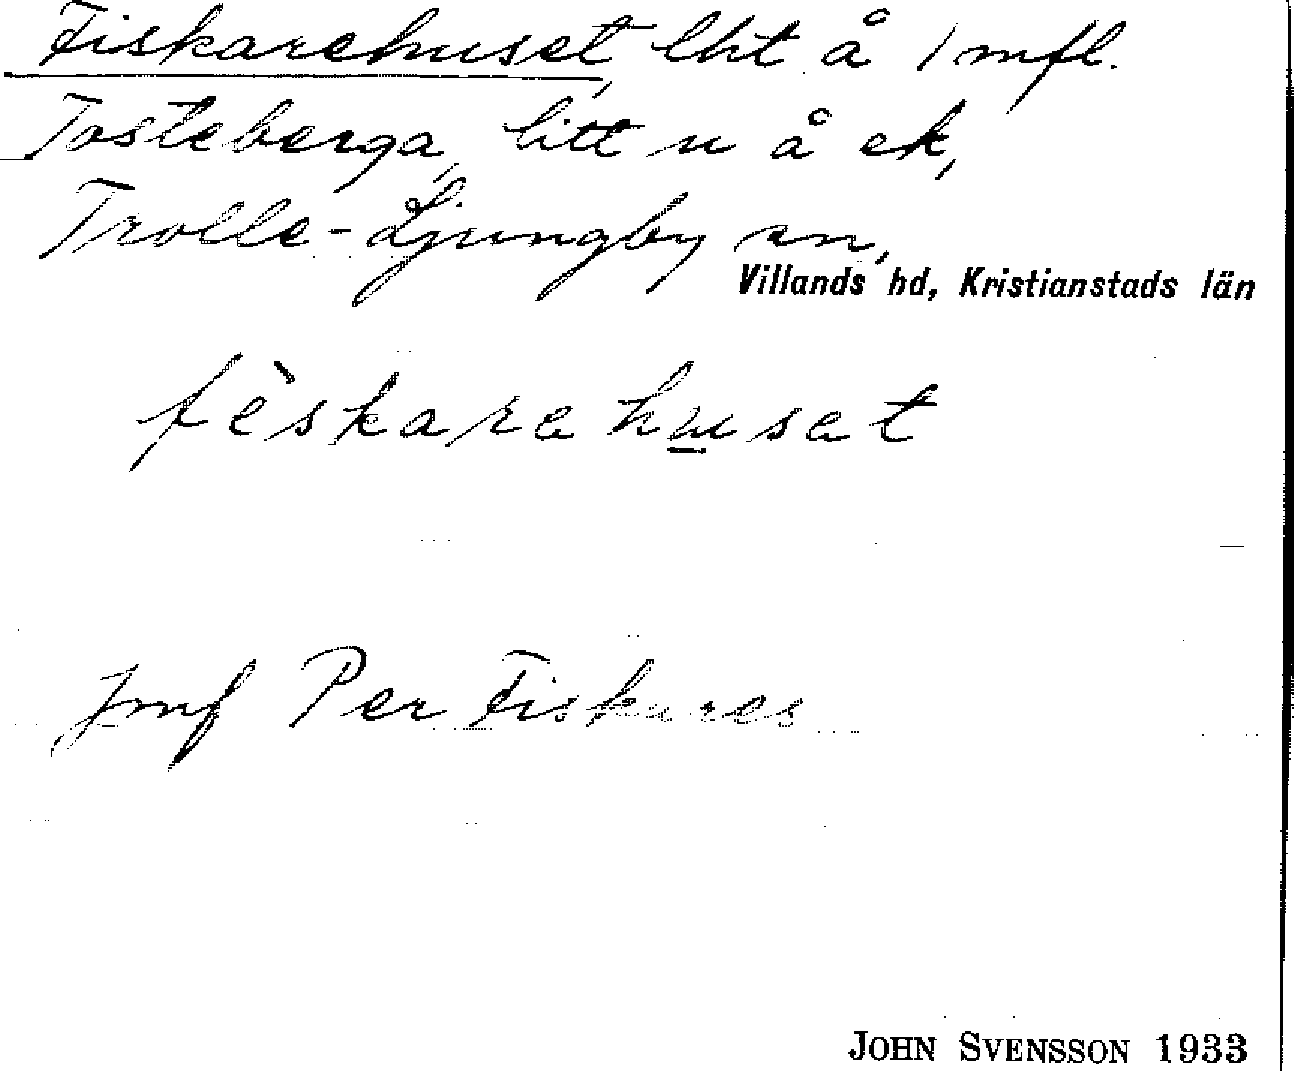 Fiskarehuset, lht å 1 mfl.
Tosteberga, litt u å ek,
Trolle-Ljungby sn,
Villands hd, Kristianstads län
fèskarehuset
Jmf Per Fiskares
JOHN SVENSSON 1933